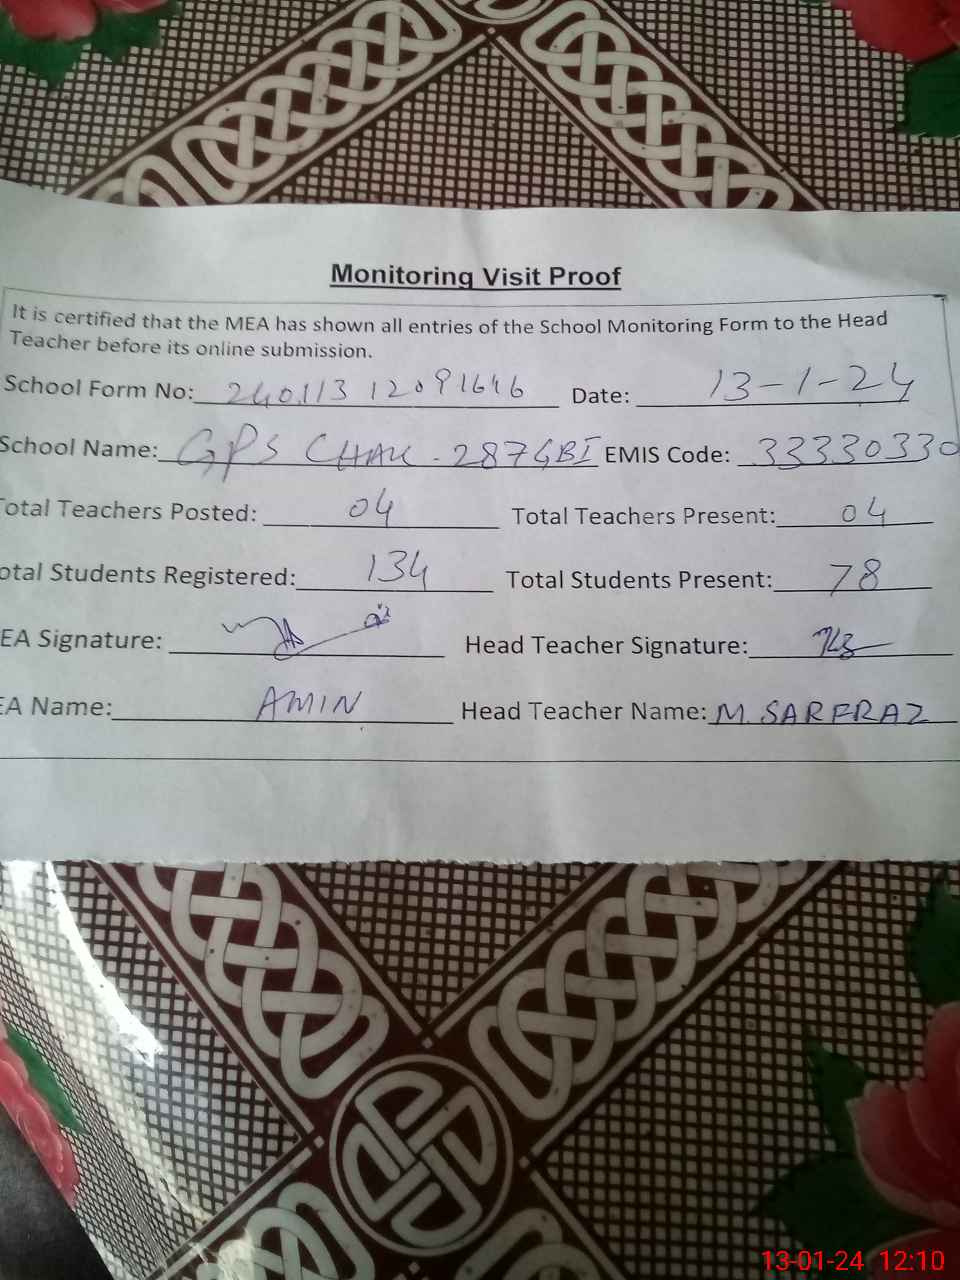 Monitoring Visit Proof
It is certified that the MEA has shown all entries of the School Monitoring Form to the Head
Teacher before its online submission.
School Form No: 240113 12091646 Date: 13-1-24
School Name: GPS CHAK-287GBI EMIS Code: 33330330
Total Teachers Posted: 04 Total Teachers Present: 04
otal Students Registered: 134 Total Students Present: 78
EA Signature: Head Teacher Signature:
EA Name: AMIN Head Teacher Name: M. SARFRAZ
13-01-24 12:10